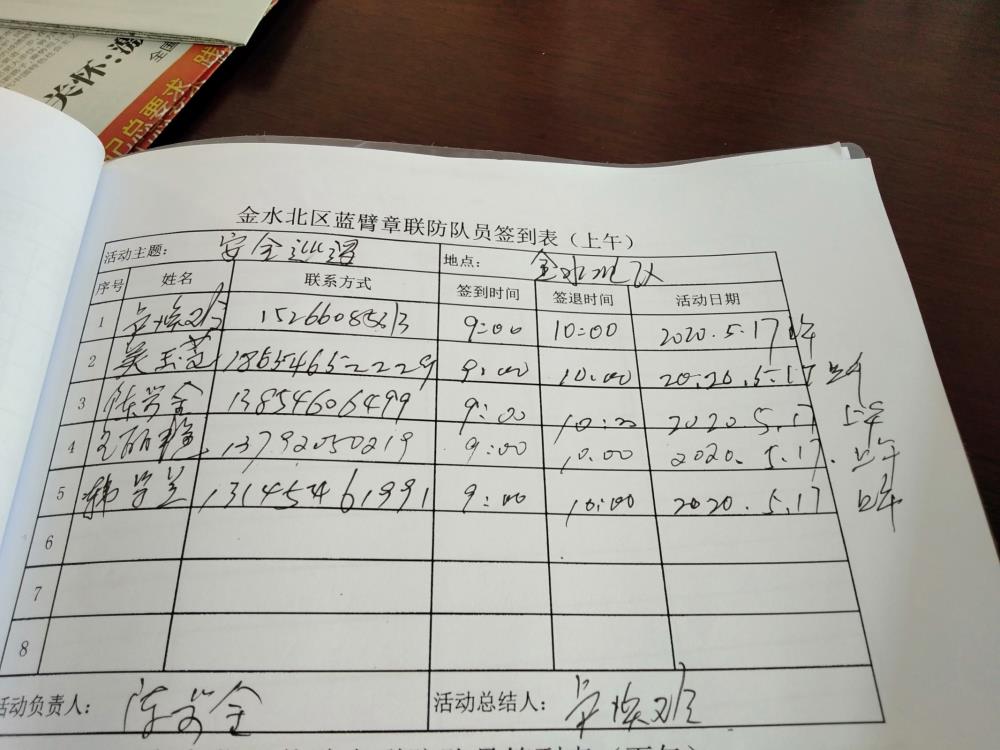 关怀:激
全国
记总要求 践
金水北区蓝臂章联防队员签到表（上午）
活动主题: 安全巡逻 地点: 金水北区
序号 姓名 联系方式 签到时间 签退时间 活动日期
1 15266085313 9:00 10:00 2020.5.17 上午
2 吴玉莲 18654652229 9:00 10:00 2020.5.17 上午
3 陈学全 13854606499 9:00 10:00 2020.5.17 上午
4 13792050219 9:00 10:00 2020.5.17. 上午
5 韩学兰 13145461991 9:00 10:00 2020.5.17 上午
6
7
8
活动负责人: 陈学全 活动总结人: